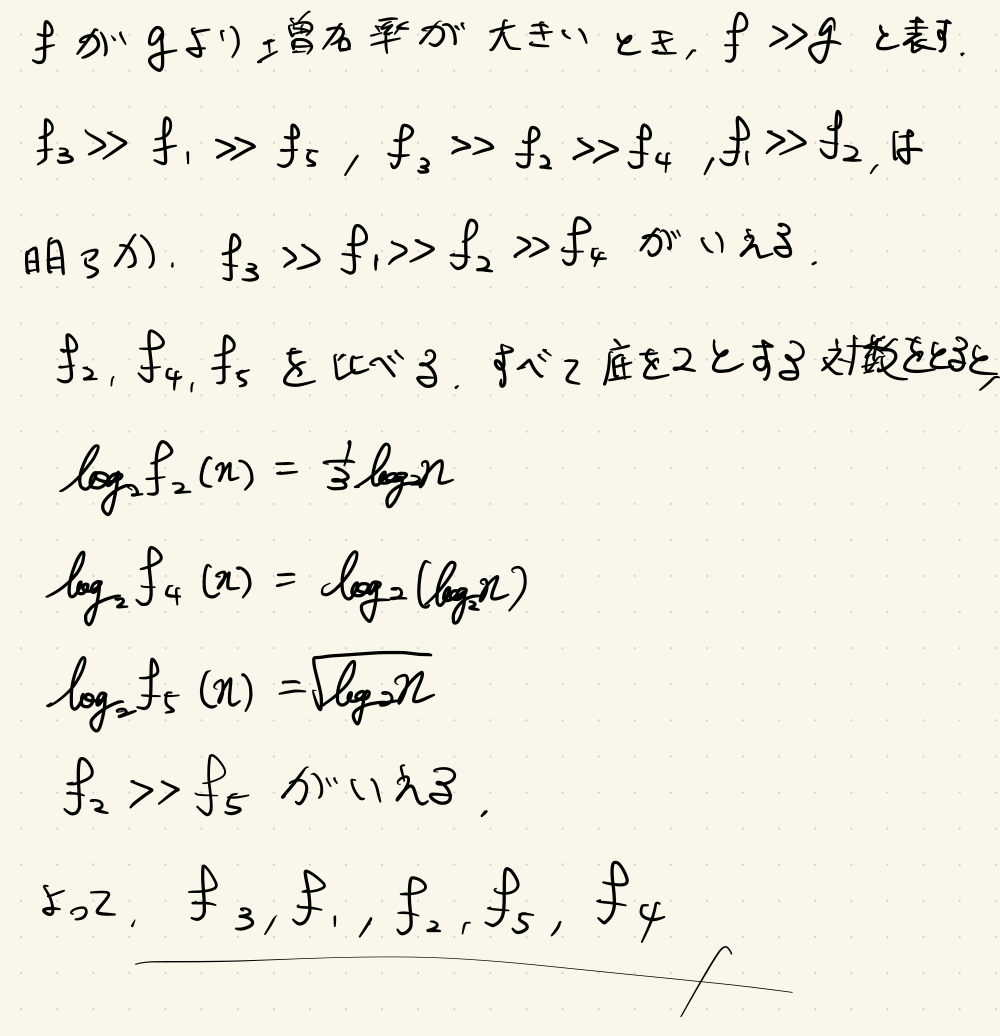 fがgより増加率が大きいとき, f >> g と表す.
f₃ >> f₁ >> f₅ , f₃ >> f₂ >> f₄ , f₁ >> f₂, は
明らか. f₃ >> f₁ >> f₂ >> f₄ がいえる.
f₂, f₄, f₅ を比べる. すべて底を2とする対数をとると,
log₂f₂(n) = 1/3 log₂n
log₂f₄(n) = log₂(log₂n)
log₂f₅(n) = √log₂n
f₂ >> f₅ がいえる.
よって, f₃, f₁, f₂, f₅, f₄